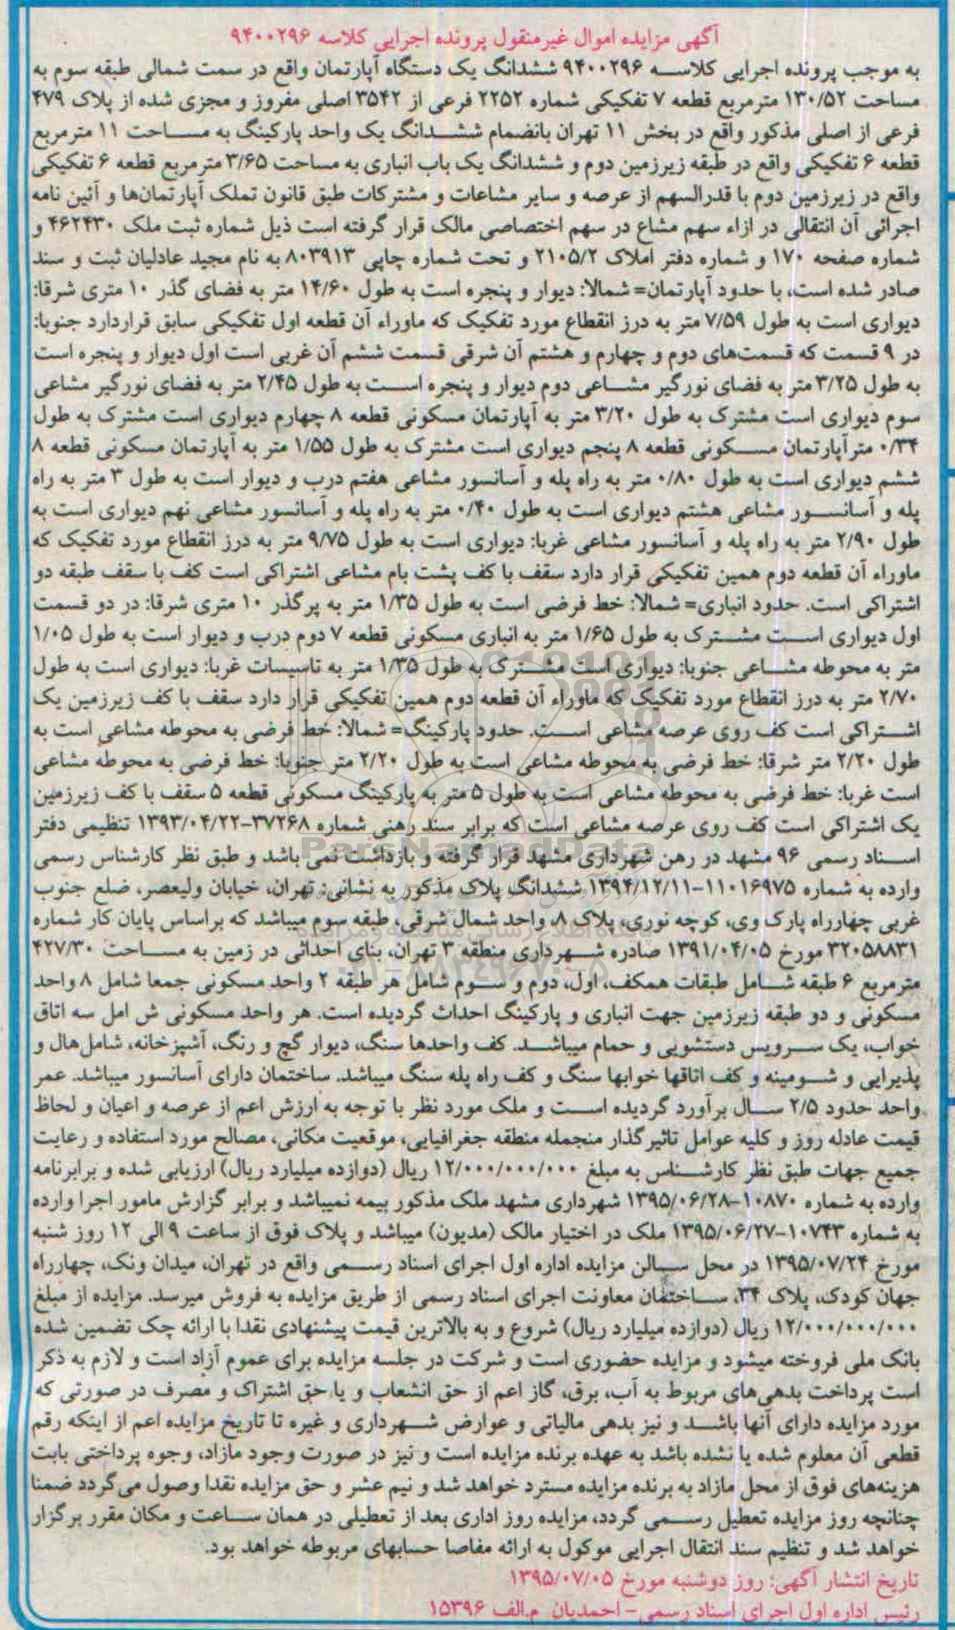 آگهی مزایده اموال غیرمنقول پرونده اجرایی کلاسه ۹۴۰۰۲۹۶
به موجب پرونده اجرایی کلاســه ۹۴۰۰۲۹۶ ششدانگ یک دستگاه آپارتمان واقع در سمت شمالی طبقه سوم به
مساحت ۱۳۰/۵۲ مترمربع قطعه ۷ تفکیکی شماره ۲۲۵۲ فرعی از ۳۵۴۲ اصلی مفروز و مجزی شده از پلاک ۴۷۹
فرعی از اصلی مذکور واقع در بخش ۱۱ تهران بانضمام ششــدانگ یک واحد پارکینگ به مســاحت ۱۱ مترمربع
قطعه ۶ تفکیکی واقع در طبقه زیرزمین دوم و ششدانگ یک باب انباری به مساحت ۳/۶۵ مترمربع قطعه ۶ تفکیکی
واقع در زیرزمین دوم با قدرالسهم از عرصه و سایر مشاعات و مشترکات طبق قانون تملک آپارتمان‌ها و آئین نامه
اجرائی آن انتقالی در ازاء سهم مشاع در سهم اختصاصی مالک قرار گرفته است ذیل شماره ثبت ملک ۴۶۲۴۳۰ و
شماره صفحه ۱۷۰ و شماره دفتر املاک ۲۱۰۵/۲ و تحت شماره چاپی ۸۰۳۹۱۳ به نام مجید عادلیان ثبت و سند
صادر شده است، با حدود آپارتمان= شمالا: دیوار و پنجره است به طول ۱۴/۶۰ متر به فضای گذر ۱۰ متری شرقا:
دیواری است به طول ۷/۵۹ متر به درز انقطاع مورد تفکیک که ماوراء آن قطعه اول تفکیکی سابق قراردارد جنوبا:
در ۹ قسمت که قسمت‌های دوم و چهارم و هشتم آن شرقی قسمت ششم آن غربی است اول دیوار و پنجره است
به طول ۳/۲۵ متر به فضای نورگیر مشــاعی دوم دیوار و پنجره اســت به طول ۲/۴۵ متر به فضای نورگیر مشاعی
سوم دیواری است مشترک به طول ۳/۲۰ متر به آپارتمان مسکونی قطعه ۸ چهارم دیواری است مشترک به طول
۰/۳۴ مترآپارتمان مســکونی قطعه ۸ پنجم دیواری است مشترک به طول ۱/۵۵ متر به آپارتمان مسکونی قطعه ۸
ششم دیواری است به طول ۰/۸۰ متر به راه پله و آسانسور مشاعی هفتم درب و دیوار است به طول ۳ متر به راه
پله و آسانســور مشاعی هشتم دیواری است به طول ۰/۴۰ متر به راه پله و آسانسور مشاعی نهم دیواری است به
طول ۲/۹۰ متر به راه پله و آسانسور مشاعی غربا: دیواری است به طول ۹/۷۵ متر به درز انقطاع مورد تفکیک که
ماوراء آن قطعه دوم همین تفکیکی قرار دارد سقف با کف پشت بام مشاعی اشتراکی است کف با سقف طبقه دو
اشتراکی است. حدود انباری= شمالا: خط فرضی است به طول ۱/۳۵ متر به پرگذر ۱۰ متری شرقا: در دو قسمت
اول دیواری اســت مشــترک به طول ۱/۶۵ متر به انباری مسکونی قطعه ۷ دوم درب و دیوار است به طول ۱/۰۵
متر به محوطه مشــاعی جنوبا: دیواری است مشــترک به طول ۱/۳۵ متر به تاسیسات غربا: دیواری است به طول
۲/۷۰ متر به درز انقطاع مورد تفکیک که ماوراء آن قطعه دوم همین تفکیکی قرار دارد سقف با کف زیرزمین یک
اشــتراکی است کف روی عرصه مشاعی اســت. حدود پارکینگ= شمالا: خط فرضی به محوطه مشاعی است به
طول ۲/۲۰ متر شرقا: خط فرضی به محوطه مشاعی است به طول ۲/۲۰ متر جنوبا: خط فرضی به محوطه مشاعی
است غربا: خط فرضی به محوطه مشاعی است به طول ۵ متر به پارکینگ مسکونی قطعه ۵ سقف با کف زیرزمین
یک اشتراکی است کف روی عرصه مشاعی است که برابر سند رهنی شماره ۳۷۲۶۸-۱۳۹۳/۰۴/۲۲ تنظیمی دفتر
اســناد رسمی ۹۶ مشهد در رهن شهرداری مشهد قرار گرفته و بازداشت نمی باشد و طبق نظر کارشناس رسمی
وارده به شماره ۱۱۰۱۶۹۷۵-۱۳۹۴/۱۲/۱۱ ششدانگ پلاک مذکور به نشانی: تهران، خیابان ولیعصر، ضلع جنوب
غربی چهارراه پارک وی، کوچه نوری، پلاک ۸، واحد شمال شرقی، طبقه سوم میباشد که براساس پایان کار شماره
۳۲۰۵۸۸۳۱ مورخ ۱۳۹۱/۰۴/۰۵ صادره شــهرداری منطقه ۳ تهران، بنای احداثی در زمین به مســاحت ۴۲۷/۳۰
مترمربع ۶ طبقه شــامل طبقات همکف، اول، دوم و ســوم شامل هر طبقه ۲ واحد مسکونی جمعا شامل ۸ واحد
مسکونی و دو طبقه زیرزمین جهت انباری و پارکینگ احداث گردیده است. هر واحد مسکونی ش امل سه اتاق
خواب، یک ســرویس دستشویی و حمام میباشــد. کف واحدها سنگ، دیوار گچ و رنگ، آشپزخانه، شامل‌هال و
پذیرایی و شــومینه و کف اتاقها خوابها سنگ و کف راه پله سنگ میباشد. ساختمان دارای آسانسور میباشد. عمر
واحد حدود ۲/۵ ســال برآورد گردیده اســت و ملک مورد نظر با توجه به ارزش اعم از عرصه و اعیان و لحاظ
قیمت عادله روز و کلیه عوامل تاثیرگذار منجمله منطقه جغرافیایی، موقعیت مکانی، مصالح مورد استفاده و رعایت
جمیع جهات طبق نظر کارشــناس به مبلغ ۱۲/۰۰۰/۰۰۰/۰۰۰ ریال (دوازده میلیارد ریال) ارزیابی شده و برابرنامه
وارده به شماره ۱۰۸۷۰-۱۳۹۵/۰۶/۲۸ شهرداری مشهد ملک مذکور بیمه نمیباشد و برابر گزارش مامور اجرا وارده
به شماره ۱۰۷۴۳-۱۳۹۵/۰۶/۲۷ ملک در اختیار مالک (مدیون) میباشد و پلاک فوق از ساعت ۹ الی ۱۲ روز شنبه
مورخ ۱۳۹۵/۰۷/۲۴ در محل ســالن مزایده اداره اول اجرای اسناد رســمی واقع در تهران، میدان ونک، چهارراه
جهان کودک، پلاک ۳۴، ســاختمان معاونت اجرای اسناد رسمی از طریق مزایده به فروش میرسد. مزایده از مبلغ
۱۲/۰۰۰/۰۰۰/۰۰۰ ریال (دوازده میلیارد ریال) شروع و به بالاترین قیمت پیشنهادی نقدا با ارائه چک تضمین شده
بانک ملی فروخته میشود و مزایده حضوری است و شرکت در جلسه مزایده برای عموم آزاد است و لازم به ذکر
است پرداخت بدهی‌های مربوط به آب، برق، گاز اعم از حق انشعاب و یا حق اشتراک و مصرف در صورتی که
مورد مزایده دارای آنها باشــد و نیز بدهی مالیاتی و عوارض شــهرداری و غیره تا تاریخ مزایده اعم از اینکه رقم
قطعی آن معلوم شده یا نشده باشد به عهده برنده مزایده است و نیز در صورت وجود مازاد، وجوه پرداختی بابت
هزینه‌های فوق از محل مازاد به برنده مزایده مسترد خواهد شد و نیم عشر و حق مزایده نقدا وصول می‌گردد ضمنا
چنانچه روز مزایده تعطیل رســمی گردد، مزایده روز اداری بعد از تعطیلی در همان ســاعت و مکان مقرر برگزار
خواهد شد و تنظیم سند انتقال اجرایی موکول به ارائه مفاصا حسابهای مربوطه خواهد بود.
تاریخ انتشار آگهی: روز دوشنبه مورخ ۱۳۹۵/۰۷/۰۵
رئیس اداره اول اجرای اسناد رسمی- احمدیان م.الف ۱۵۳۹۶
ParsNamadData